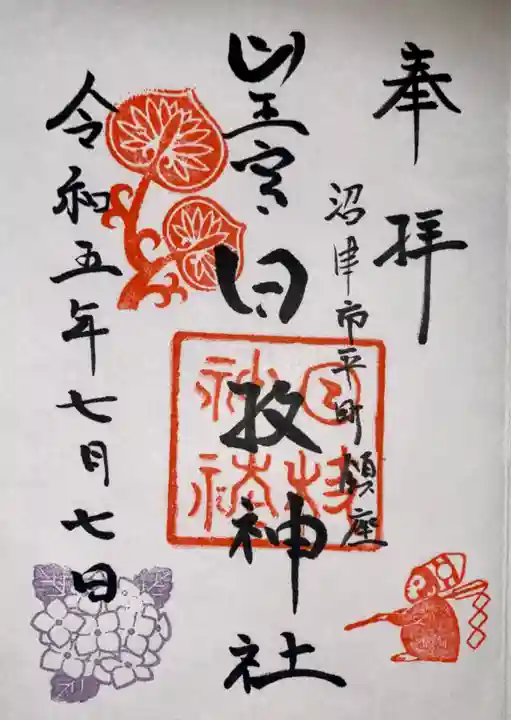 奉拝
沼津市平町鎮座
山王宮
日枝神社
日枝神社
令和五年七月七日